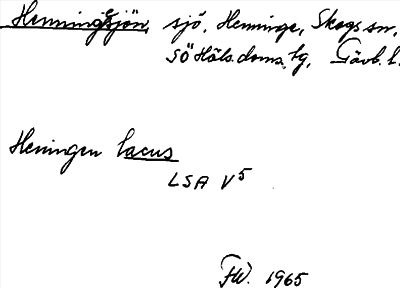 Henningesjön, sjö, Henninge, Skogs sn,
SÖ Häls. doms. tg, Gävb. l.
Heningen lacus
LSA V5
FW. 1965